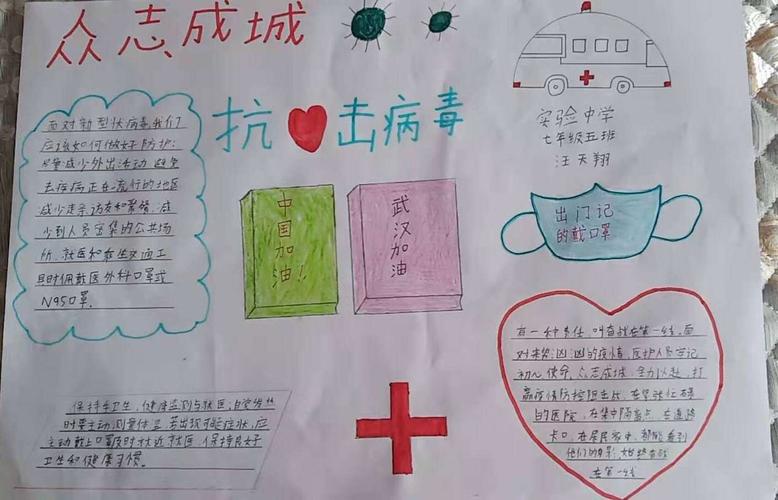 众志成城
抗击病毒
实验中学
七年级五班
汪天翔
面对新型状病毒我们
应该如何做好防护:
尽量减少外出活动 避免
去疾病正在流行的地区
减少走亲访友和聚餐 减
少到人员密集的公共场
所,就医和乘坐交通工
具时佩戴医外科口罩或
N95口罩.
中国加油!!
武汉加油
出门记
的戴口罩
有一种责任,叫奋战在第一线,面
对来势汹汹的疫情,医护人员牢记
初心使命,众志成城,全力以赴,打
赢疫情防控阻击战,在紧张忙碌
的医院,在集中隔离点,在道路
卡口,在居民家中,都能看到
他们的身影,始终奋战
在第一线
保持手卫生,健康监测与就医;自觉发热
时要主动测量体温 若出现可疑症状,应
主动戴上口罩及时就近就医,保持良好
卫生和健康习惯。